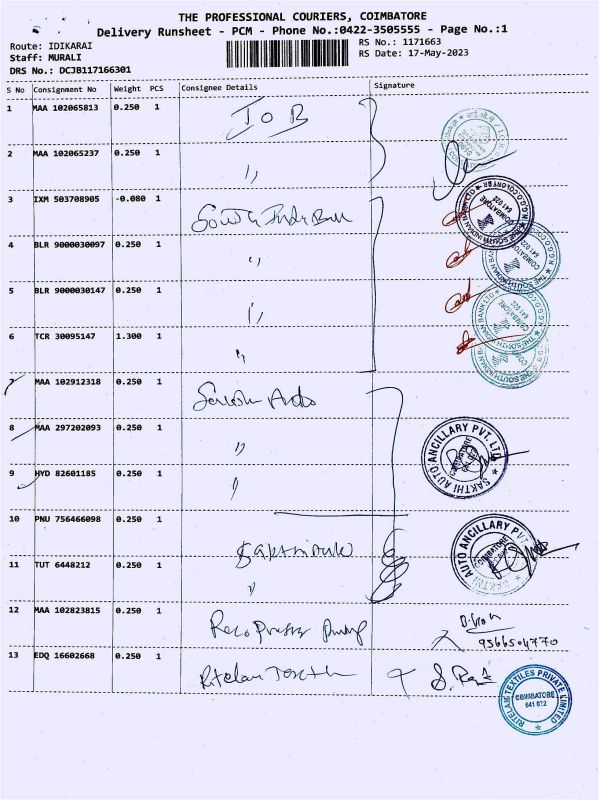 THE PROFESSIONAL COURIERS, COIMBATORE
Delivery Runsheet - PCM - Phone No.:0422-3505555 - Page No.:1
Route: IDIKARAI
RS No.: 1171663
Staff: MURALI
RS Date: 17-May-2023
DRS No.: DCJB117166301
S No Consignment No Weight PCS Consignee Details Signature
1 MAA 102065813 0.250 1 IOB
2 MAA 102065237 0.250 1 "
3 IXM 503708905 -0.080 1 South
4 BLR 9000030097 0.250 1 "
5 BLR 9000030147 0.250 1 "
6 TCR 30095147 1.300 1 "
7 MAA 102912318 0.250 1
8 MAA 297202093 0.250 1 "
SAKTHI AUTO ANCILLARY PVT. LTD
9 HYD 82601185 0.250 1 "
10 PNU 756466098 0.250 1
11 TUT 6448212 0.250 1 "
AUTO ANCILLARY PVT
COIMBATORE
12 MAA 102823815 0.250 1 Pump
9566504770
13 EDQ 16602668 0.250 1
RITELAM TEXTILES PRIVATE LIMITED
COIMBATORE
641 022